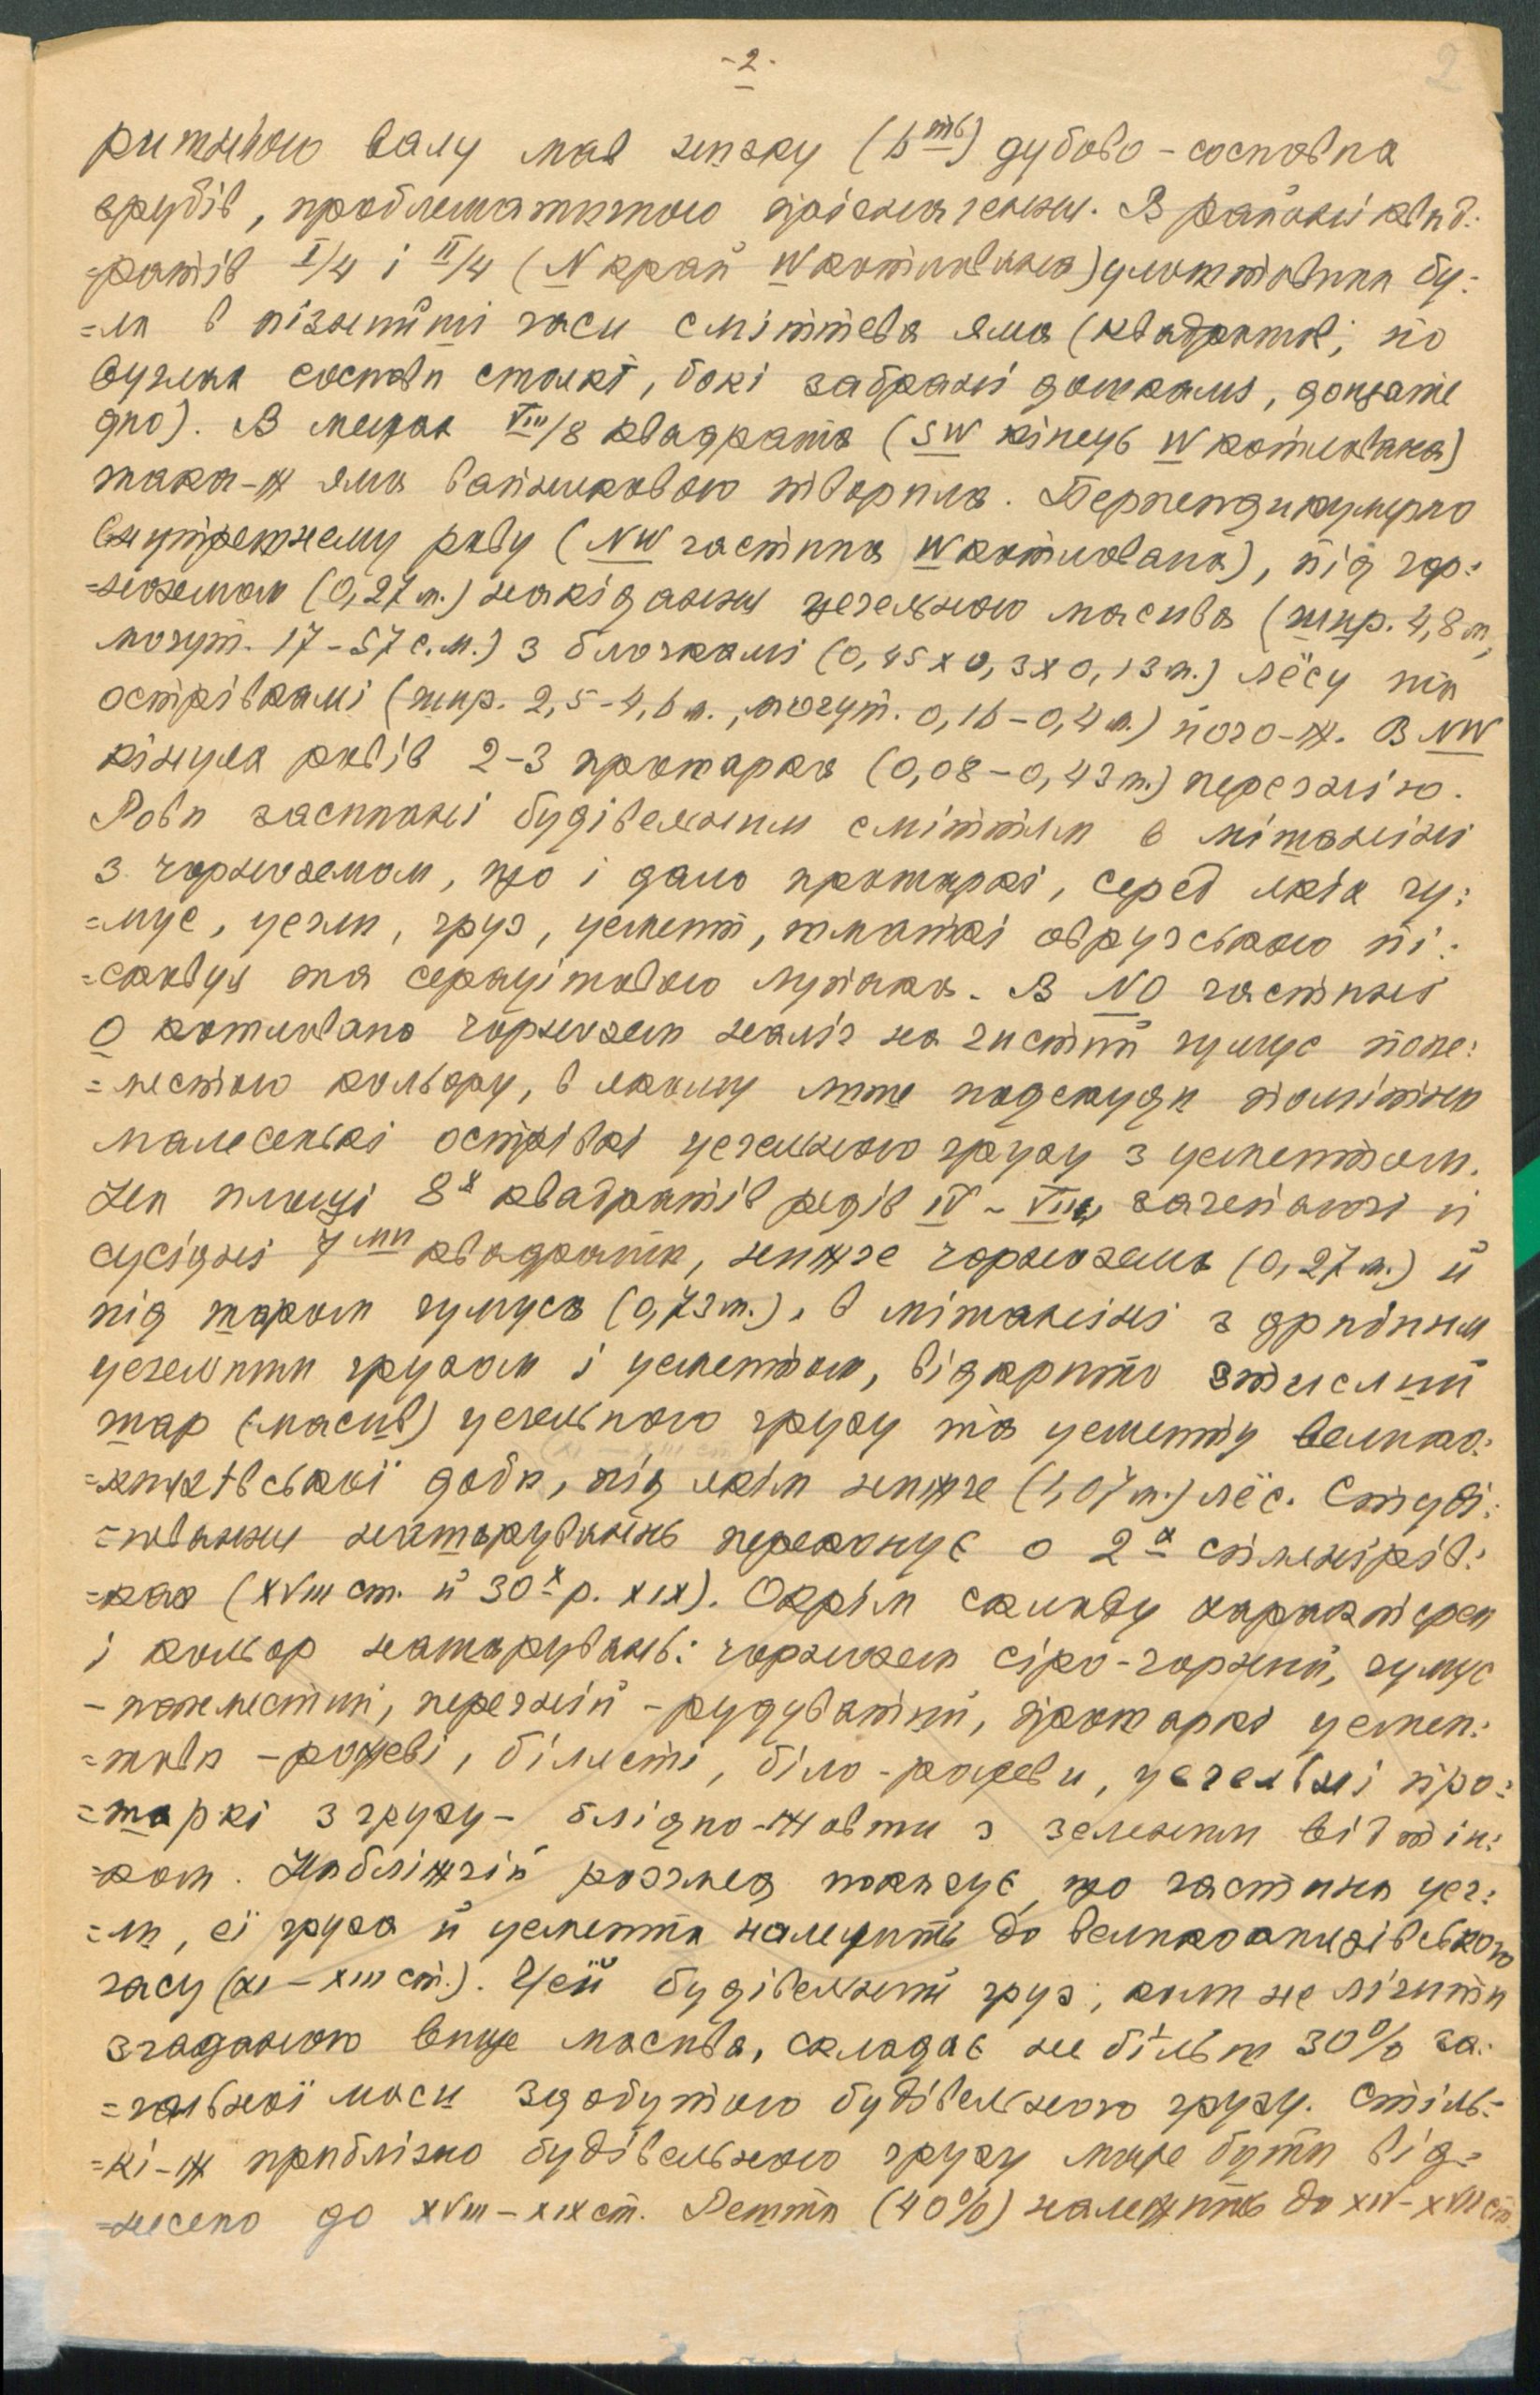 -2-
2
валу мав низку (6ть) дубово-соснових
зрубів, проблематичного призначення. В районі квад:
=ратів I/4 і II/4 (N край W котлована) улаштована бу:
=ла в пізніші часи сміттева яма (квадратов; по
вуглах соснові стовпі, бокі забрані дошками, дощате
дно). В межах VIII/8 квадрата (SW кінець W котлована)
така-ж яма вапнякового творила. Перпендикулярно
внутрешнему рову (NW частина W котлована), під чор:
=ноземом (0,27 м.) накіданням цегельного масива (шир. 4,8 м,
могут. 17-57 с.м.) з блочкамі (0,45 x 0,3 x 0,13 м.) лёсу та
острівкамі (шир. 2,5-4,6 м., могут. 0,16-0,4 м.) його-ж. В NW
кінцях ровів 2-3 прошарка (0,08-0,43 м.) перегнію.
Рови засипані будівельним сміттям в мішанині
з чорноземом, що і дало прошаркі, серед якіх гу:
=мус, цегли, груз, цемент, шматкі овручського пі:
=сковця та серацітового лупака. В NO частині
O котлована чорнозем наліг на чистий гумус попе:
=лестого кольору, в якому лише подекуди помітни
малесенькі острівкі цегельного грузу з цементом.
На площі 8х квадратів рядів IV - VIII, зачепаючі й
сусідні 7ми квадрати, нижче чорнозема (0,27 м.) й
під шаром гумуса (0,73 м.), в мішанині з дрибним
цегельним грузом і цементом, відкрито стислий
шар (масив) цегельного грузу та цементу велико:
=княжівської доби, під якім нижче (1,07 м.) лёс. Студі:
=ювання нашарувань переконує о 2х сплянірів:
=ках (XVIII ст. й 30х р. XIX). Окрім складу характерен
і кольор нашарувань: чорнозем сіро-чорний, гумус
- попелестий, перегній - рудуватий, прошаркі цемен:
=това - рожеві, білясті, біло-рожеви, цегельні про:
=шаркі з грузу - блідно-жовти з зеленим відтін:
=ком. Наближчій розгляд показує, що частина цег:
=ли, єї груза й цемента належить до великокняжівського
часу (XI - XIII ст.). Цей будівельний груз, коли не лічити
згаданого вище масива, складає не більш 30% за:
=гальної маси здобутого будівельного грузу. Стіль-
=кі-ж приблізно будівельного грузу може бути від=
=несено до XVIII - XIX ст. Решта (40%) належить до XIV - XVII ст.